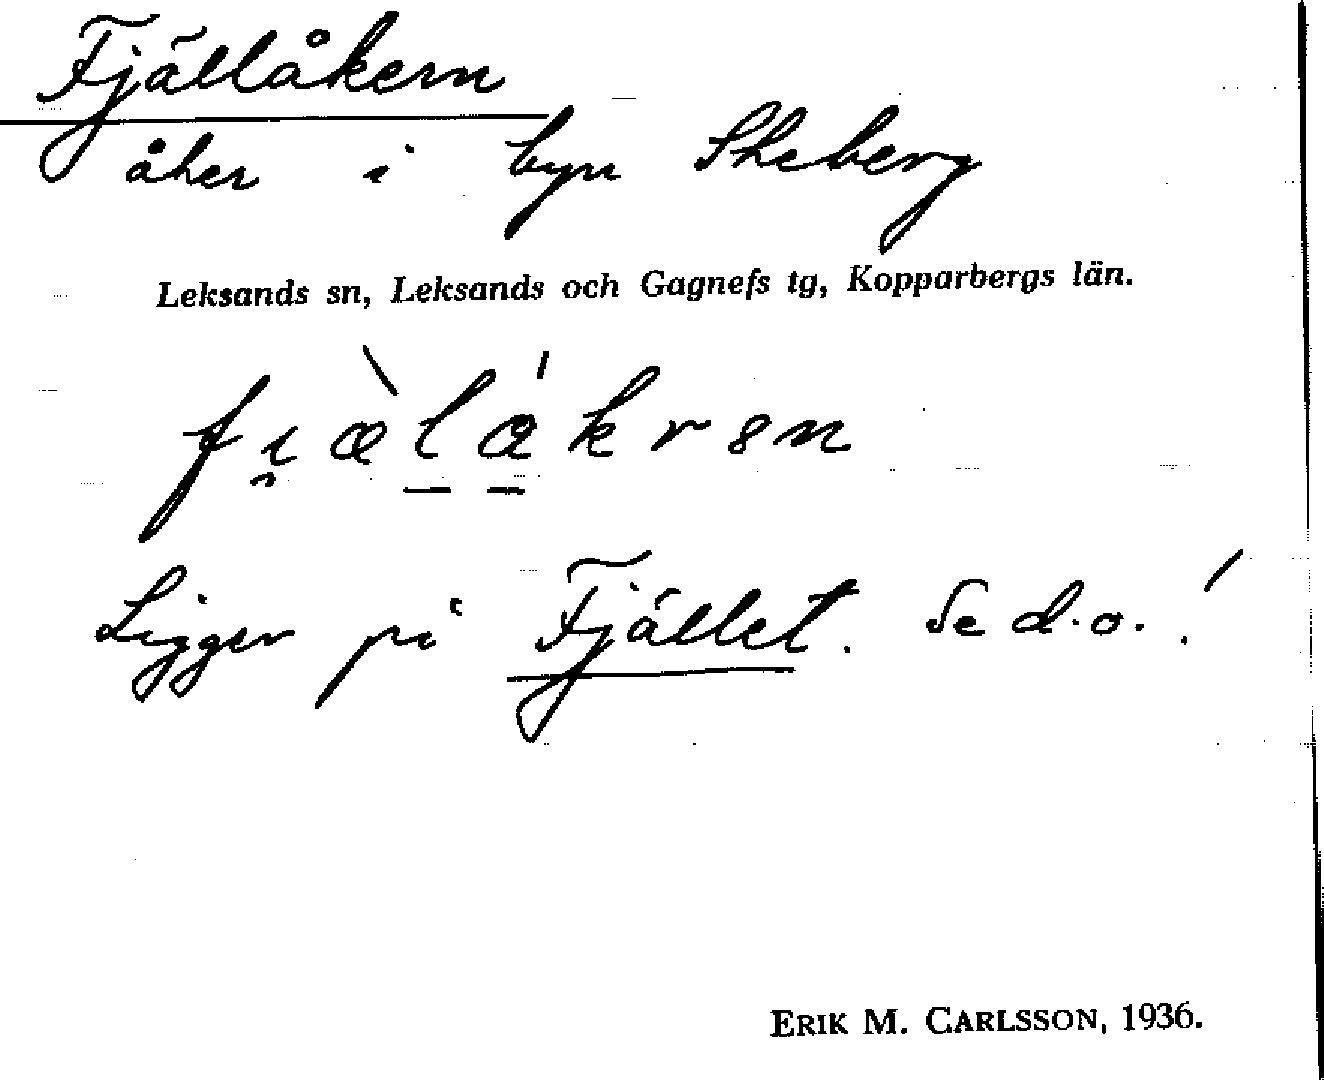 Fjällåkern
åker i byn Skeberg
Leksands sn, Leksands och Gagnefs tg, Kopparbergs län.
Ligger på Fjället. Se d.o.!
ERIK M. CARLSSON, 1936.